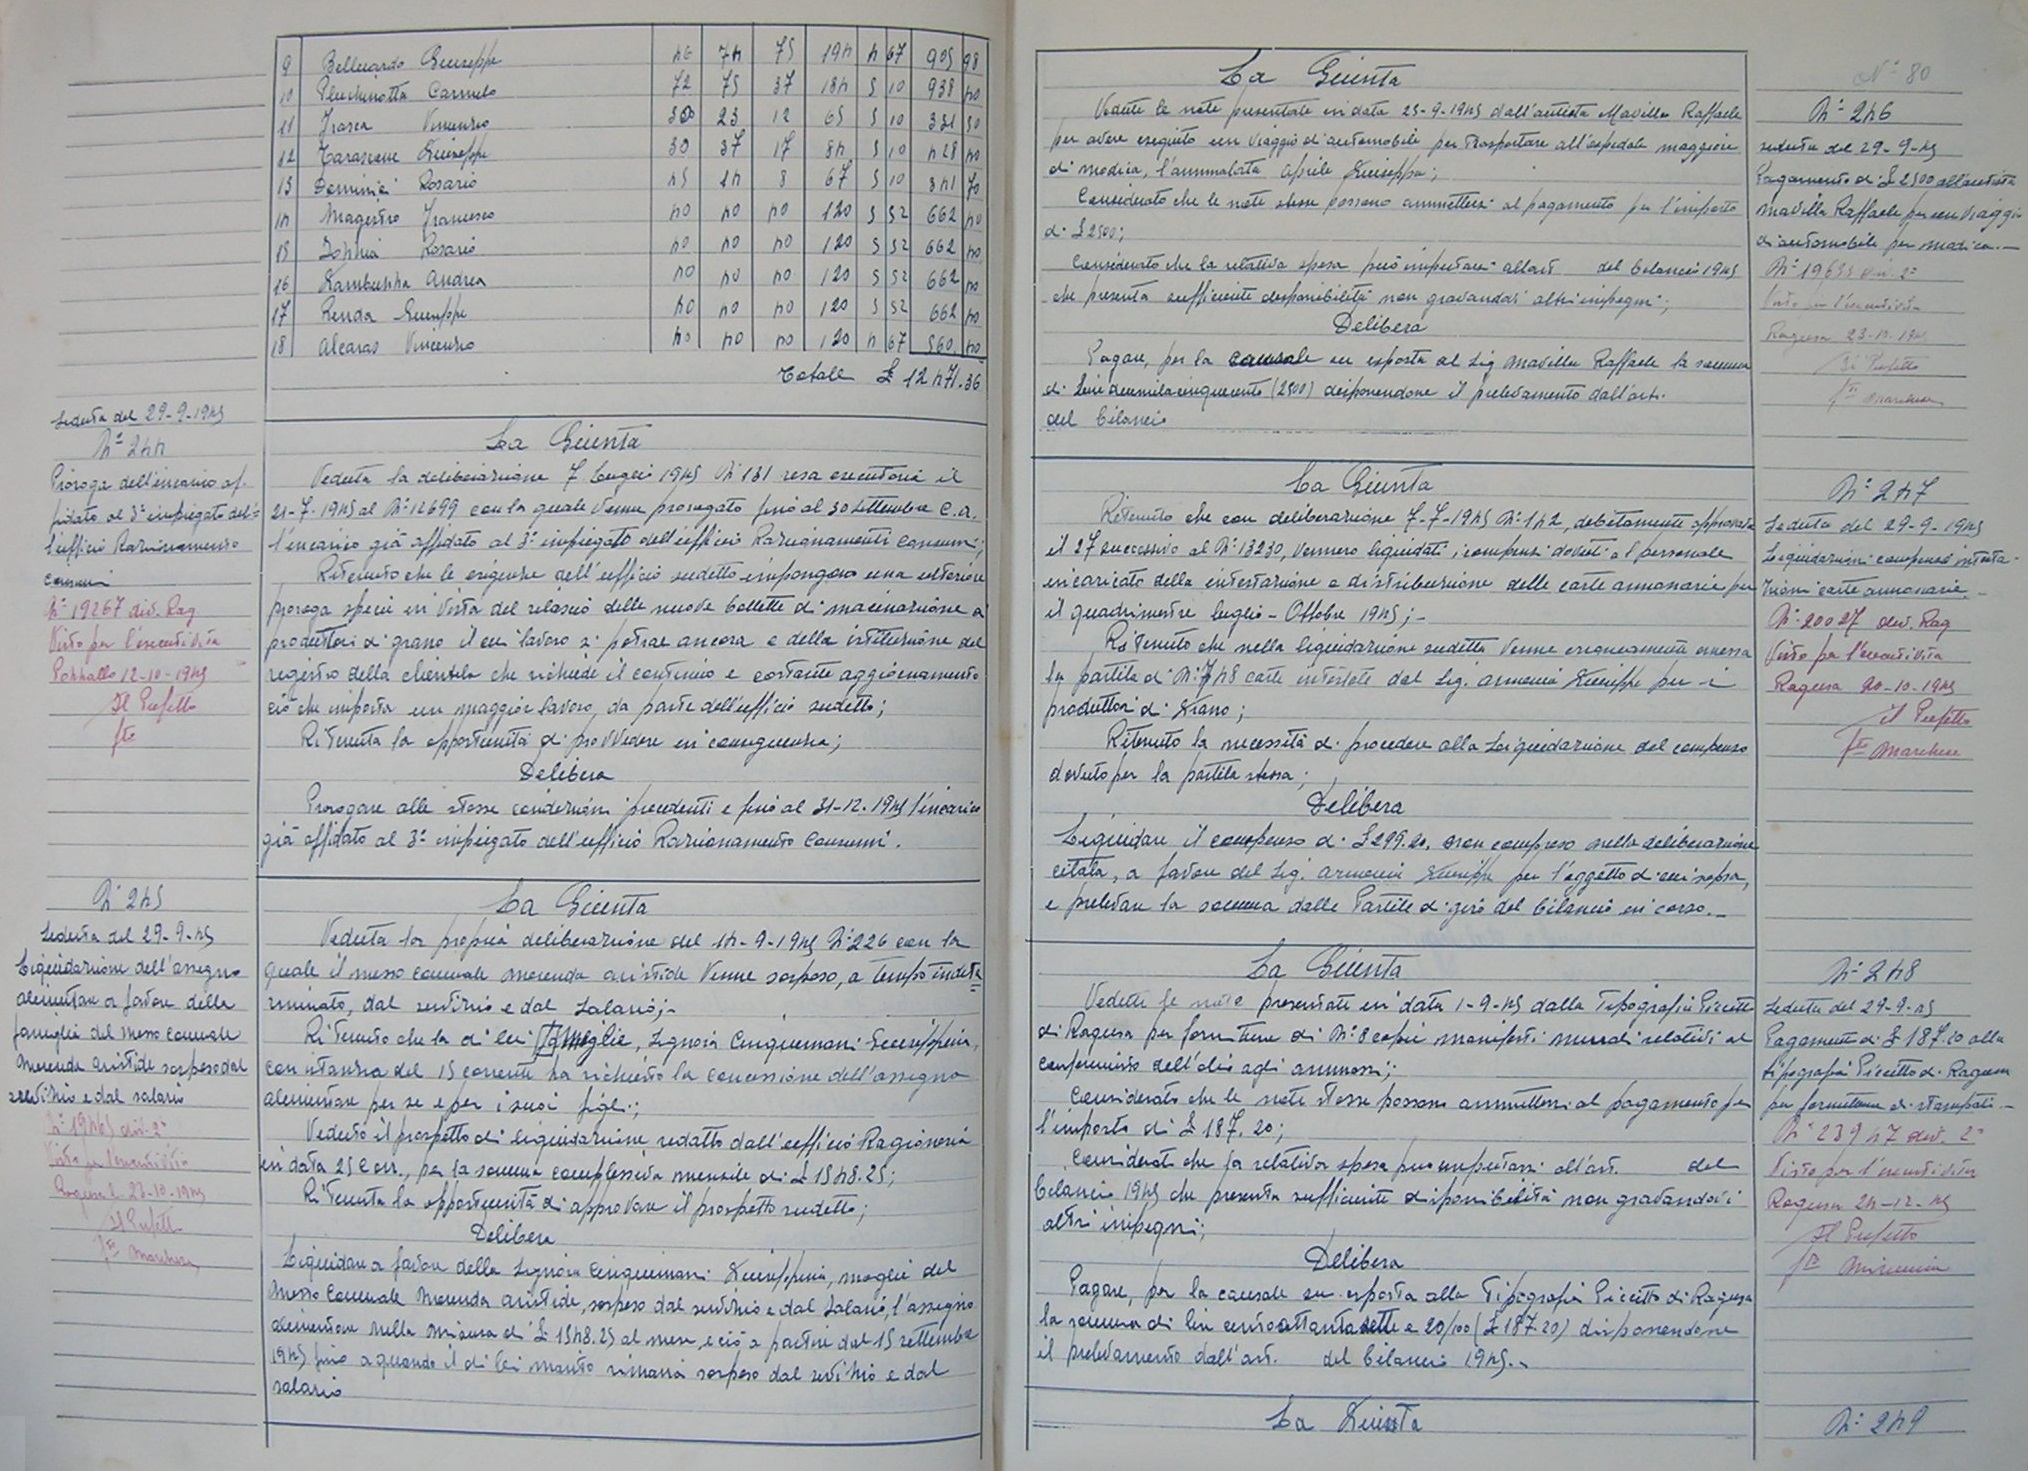 9 Belluardo Giuseppe 46 74 75 194 4 67 905 98
10 Pluchinotta Carmelo 72 75 37 184 5 10 938 40
11 Frasca Vincenzo 30 23 12 65 5 10 331 50
12 Tarascone Giuseppe 30 37 17 84 5 10 428 40
13 Dominici Rosario 45 14 8 67 5 10 341 70
14 Magestro Francesco 40 40 40 120 5 52 662 40
15 Rosario 40 40 40 120 5 52 662 40
16 Gambuzza Andrea 40 40 40 120 5 52 662 40
17 Renda Giuseppe 40 40 40 120 5 52 662 40
18 Alcaras Vincenzo 40 40 40 120 4 67 560 40
Totale £ 12471.36
Seduta del 29-9-1945
N° 244
Proroga dell'incarico af-
fidato al 3° impiegato del-
l'ufficio Razionamento
consumi
N° 19267 div. Rag
Visto per l'esecutività
Pozzallo 12-10-1945
Il Prefetto
fto
La Giunta
Veduta la deliberazione 7 Luglio 1945 N° 131 resa esecutoria il
21-7-1945 al N° 12699 con la quale venne prorogato fino al 30 settembre c.a.
l'incarico già affidato al 3° impiegato dell'ufficio Razionamenti consumi;
Ritenuto che le esigenze dell'ufficio sudetto impongono una ulteriore
proroga specie in vista del rilascio delle nuove bollette di macinazione a
produttori di grano il cui lavoro si potrae ancora e della istituzione del
registro della clientela che richiede il continuo e costante aggiornamento
ciò che importa un maggior lavoro, da parte dell'ufficio sudetto;
Ritenuta la opportunità di provvedere in conseguenza;
Delibera
Prorogare alle stesse condizioni precedenti e fino al 31-12-1945 l'incarico
già affidato al 3° impiegato dell'ufficio Razionamento Consumi.
N° 245
Seduta del 29-9-45
Liquidazione dell'assegno
alimentare a favore della
famiglia del messo comunale
Morenda Aristide sospeso dal
servizio e dal salario
N° 19445 div. 2°
Visto per l'esecutività
Ragusa l. 23-10-1945
Il Prefetto
fto Marchese
La Giunta
Veduta la propria deliberazione del 14-9-1945 N° 226 con la
quale il messo comunale Morenda Aristide venne sospeso, a tempo indete=
rminato, dal servizio e dal salario;-
Ritenuto che la di lei moglie, Signora Cinquemani Giuseppina,
con istanza del 15 corrente ha richiesto la concessione dell'assegno
alimentare per se e per i suoi figli;
Veduto il prospetto di liquidazione redatto dall'ufficio Ragioneria
in data 25 corr., per la somma complessiva mensile di £ 1548.25;
Ritenuta la opportunità di approvare il prospetto sudetto;
Delibera
Liquidare a favore della Signora Cinquemani Giuseppina, moglie del
Messo Comunale Morenda Aristide, sospeso dal servizio e dal salario, l'assegno
alimentare nella misura di £ 1548.25 al mese, e ciò a partire dal 15 settembre
1945 fino a quando il di lei marito rimarrà sospeso dal servizio e dal
salario
La Giunta
Vedute le note presentate in data 25-9-1945 dall'autista Mavilla Raffaele
per avere eseguito un viaggio d'automobile per trasportare all'ospedale maggiore
di Modica, l'ammalata Aprile Giuseppa;
Considerato che le note stesse possono ammettersi al pagamento per l'importo
di £ 2500;
Considerato che la relativa spesa può imputarsi all'art del bilancio 1945
che presenta sufficiente disponibilità non gravandovi altri impegni;
Delibera
Pagare, per la causale su esposta al Sig Mavilla Raffaele la somma
di Lire duemilacinquecento (2500) disponendone il prelevamento dall'art.
del bilancio
N° 80
N° 246
seduta del 29-9-45
Pagamento di £ 2500 all'autista
Mavilla Raffaele per un viaggio
di automobile per Modica.—
N° 19635 div. 2°
Visto per l'esecutività
Ragusa 23-10-1945
Il Prefetto
fto Marchese
La Giunta
Ritenuto che con deliberazione 7-7-1945 N° 142, debitamente approvata
il 27 successivo al N° 13230, vennero liquidati i compensi dovuti al personale
incaricato della intestazione e distribuzione delle carte annonarie per
il quadrimestre luglio-Ottobre 1945;-
Ritenuto che nella liquidazione sudetta venne erroneamente omessa
la partita di N° 748 carte intestate dal Sig. Armenia Giuseppe per i
produttori di Grano;
Ritenuto la necessità di procedere alla Liquidazione del compenso
dovuto per la partita stessa;
Delibera
Liquidare il compenso di £ 299.20, non compreso nella deliberazione
citata, a favore del Sig. Armenia Giuseppe per l'oggetto di cui sopra,
e prelevare la somma dalle Partite di giro del bilancio in corso.—
N° 247
Seduta del 29-9-1945
Liquidazioni compensi intesta-
zioni carte annonarie.—
N° 20027 div. Rag
Visto per l'esecutività
Ragusa 20-10-1945
Il Prefetto
fto Marchese
La Giunta
Vedute le note presentate in data 1-9-45 dalla Tipografia Piccitto
di Ragusa per forniture di N° 8 copie manifesti murali relativi al
conferimento dell'olio agli ammassi;
Considerato che le note stesse possono ammettersi al pagamento per
l'importo di £ 187.20;
Considerato che la relativa spesa può imputarsi all'art. del
bilancio 1945 che presenta sufficiente disponibilità non gravandovi
altri impegni;
Delibera
Pagare, per la causale su esposta alla Tipografia Piccitto di Ragusa
la somma di lire centoottantasette e 20/100 (£ 187.20) disponendone
il prelevamento dall'art. del bilancio 1945.-
N° 248
Seduta del 29-9-45
Pagamento di £ 187.20 alla
tipografia Piccitto di Ragusa
per fornitura di stampati.—
N° 23947 div. 2°
Visto per l'esecutività
Ragusa 24-12-45
Il Prefetto
fto
La Giunta
N° 249